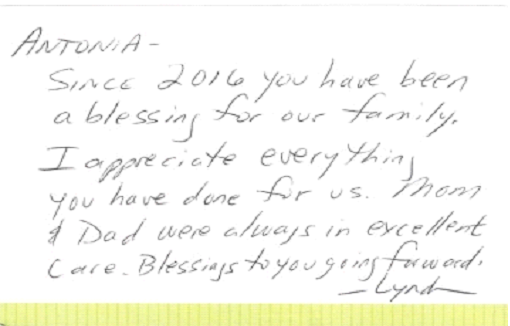 Antonia -
Since 2016 you have been
a blessing for our family.
I appreciate everything
you have done for us. Mom
& Dad were always in excellent
Care. Blessings to you going forward.